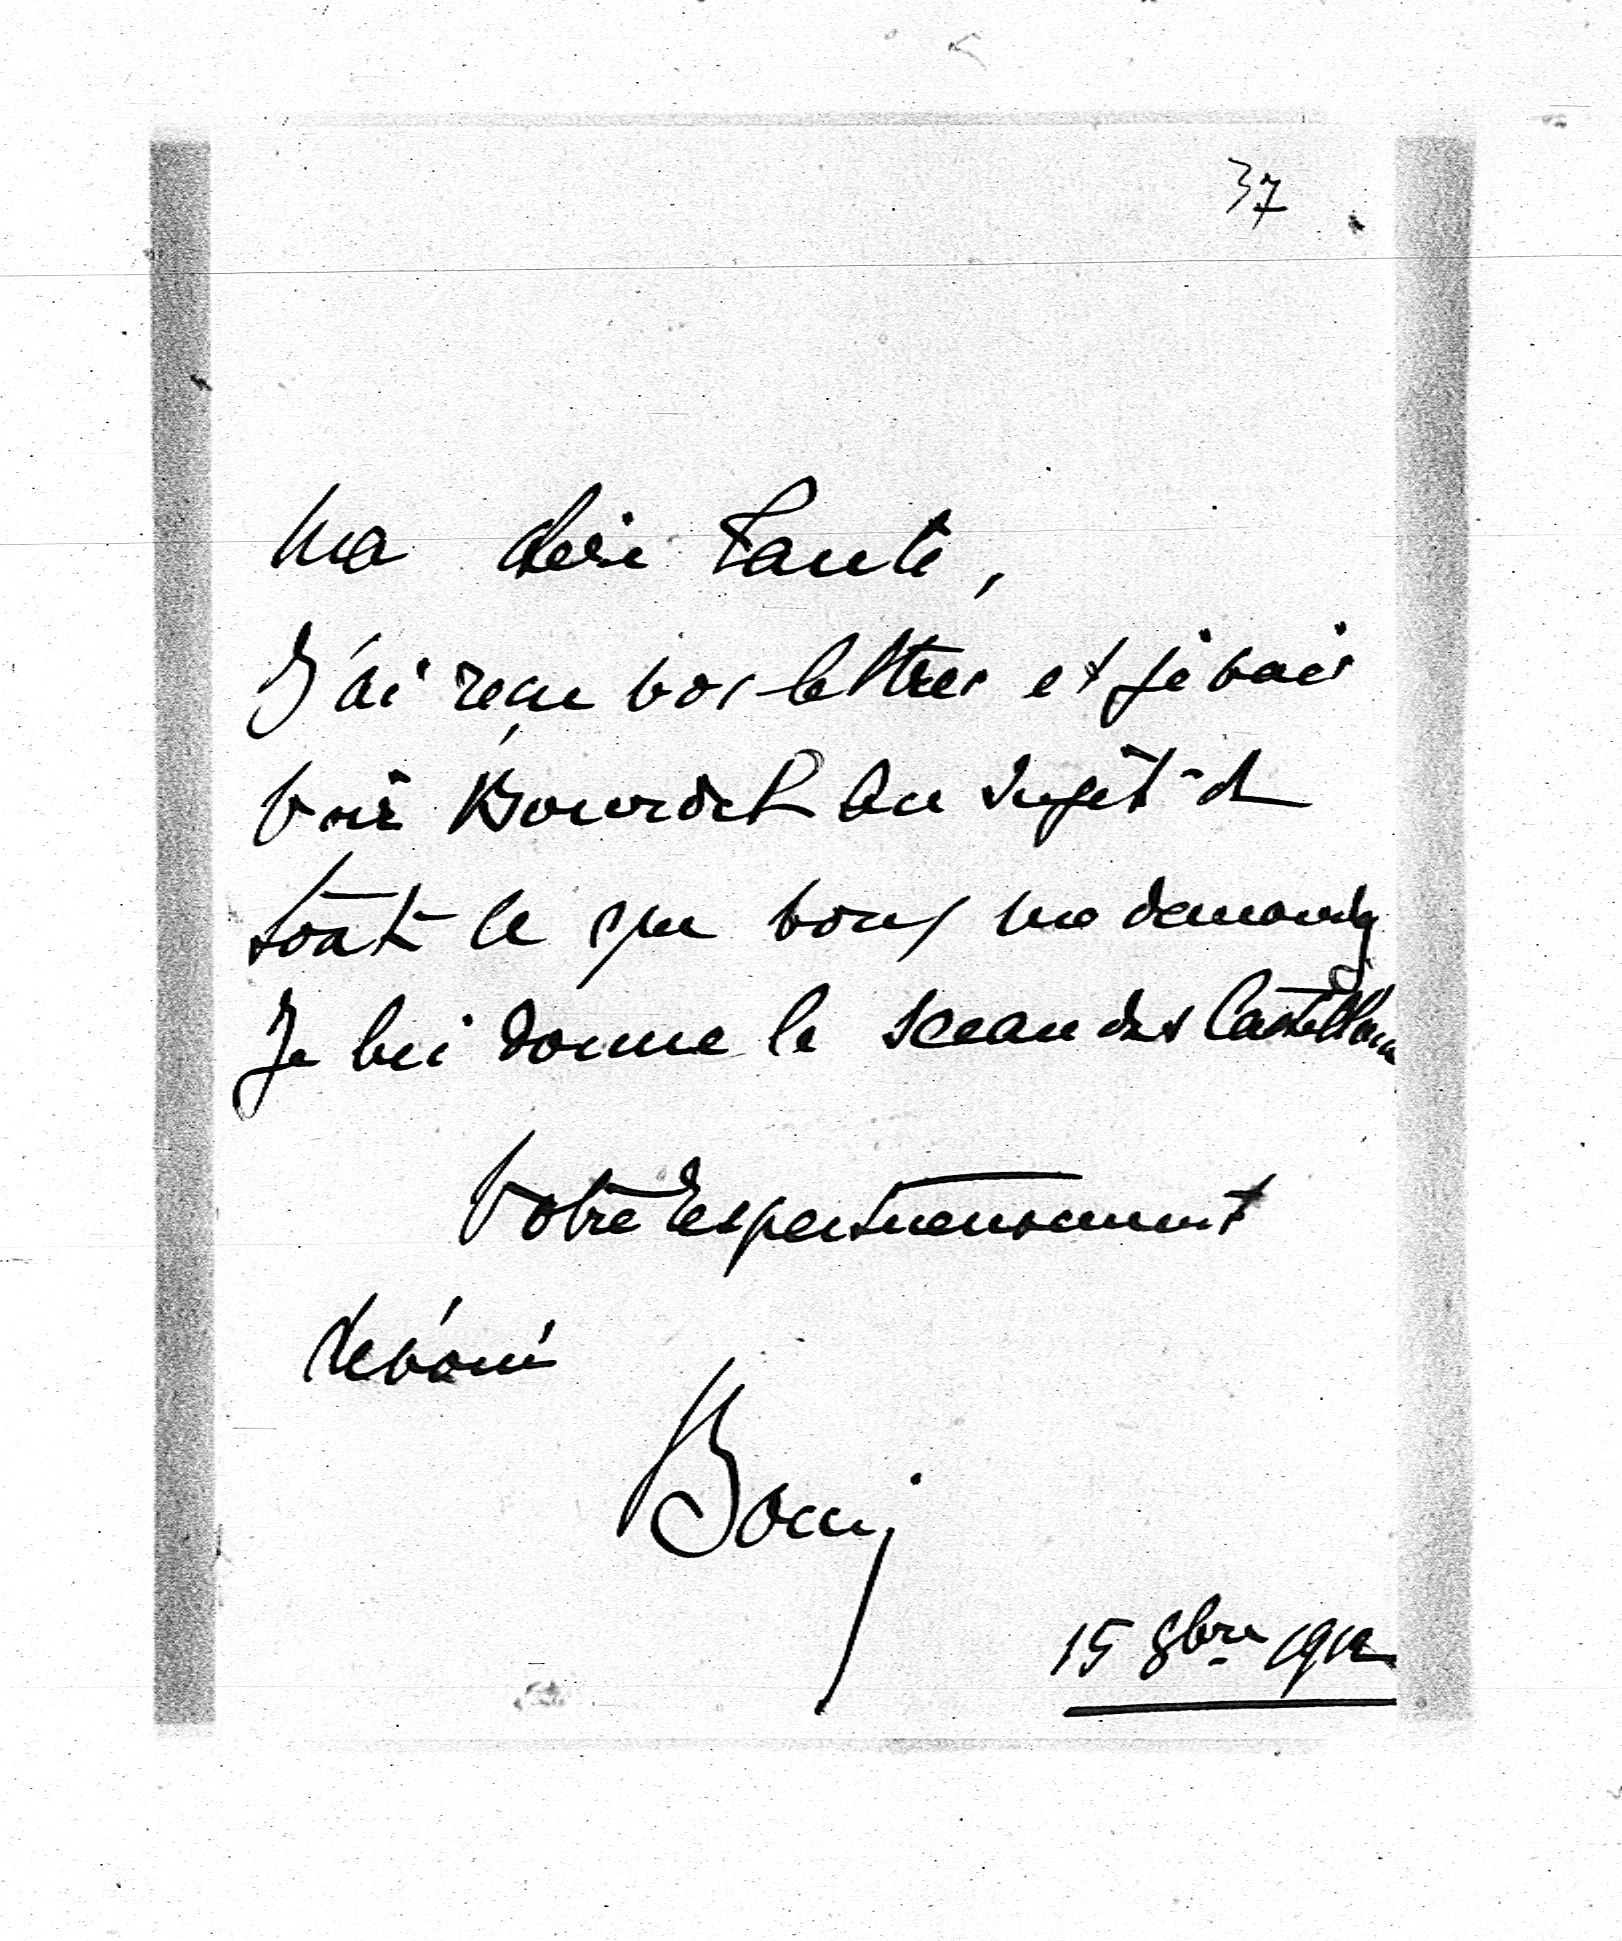 37
Ma chère Tante,
J'ai reçu vos lettres et je vais
voir Bourdet au sujet de
tout ce que vous me demandez
Je lui donne le sceau des Castellane
Votre respectueusement
dévoué
Boni
15 8bre 1912